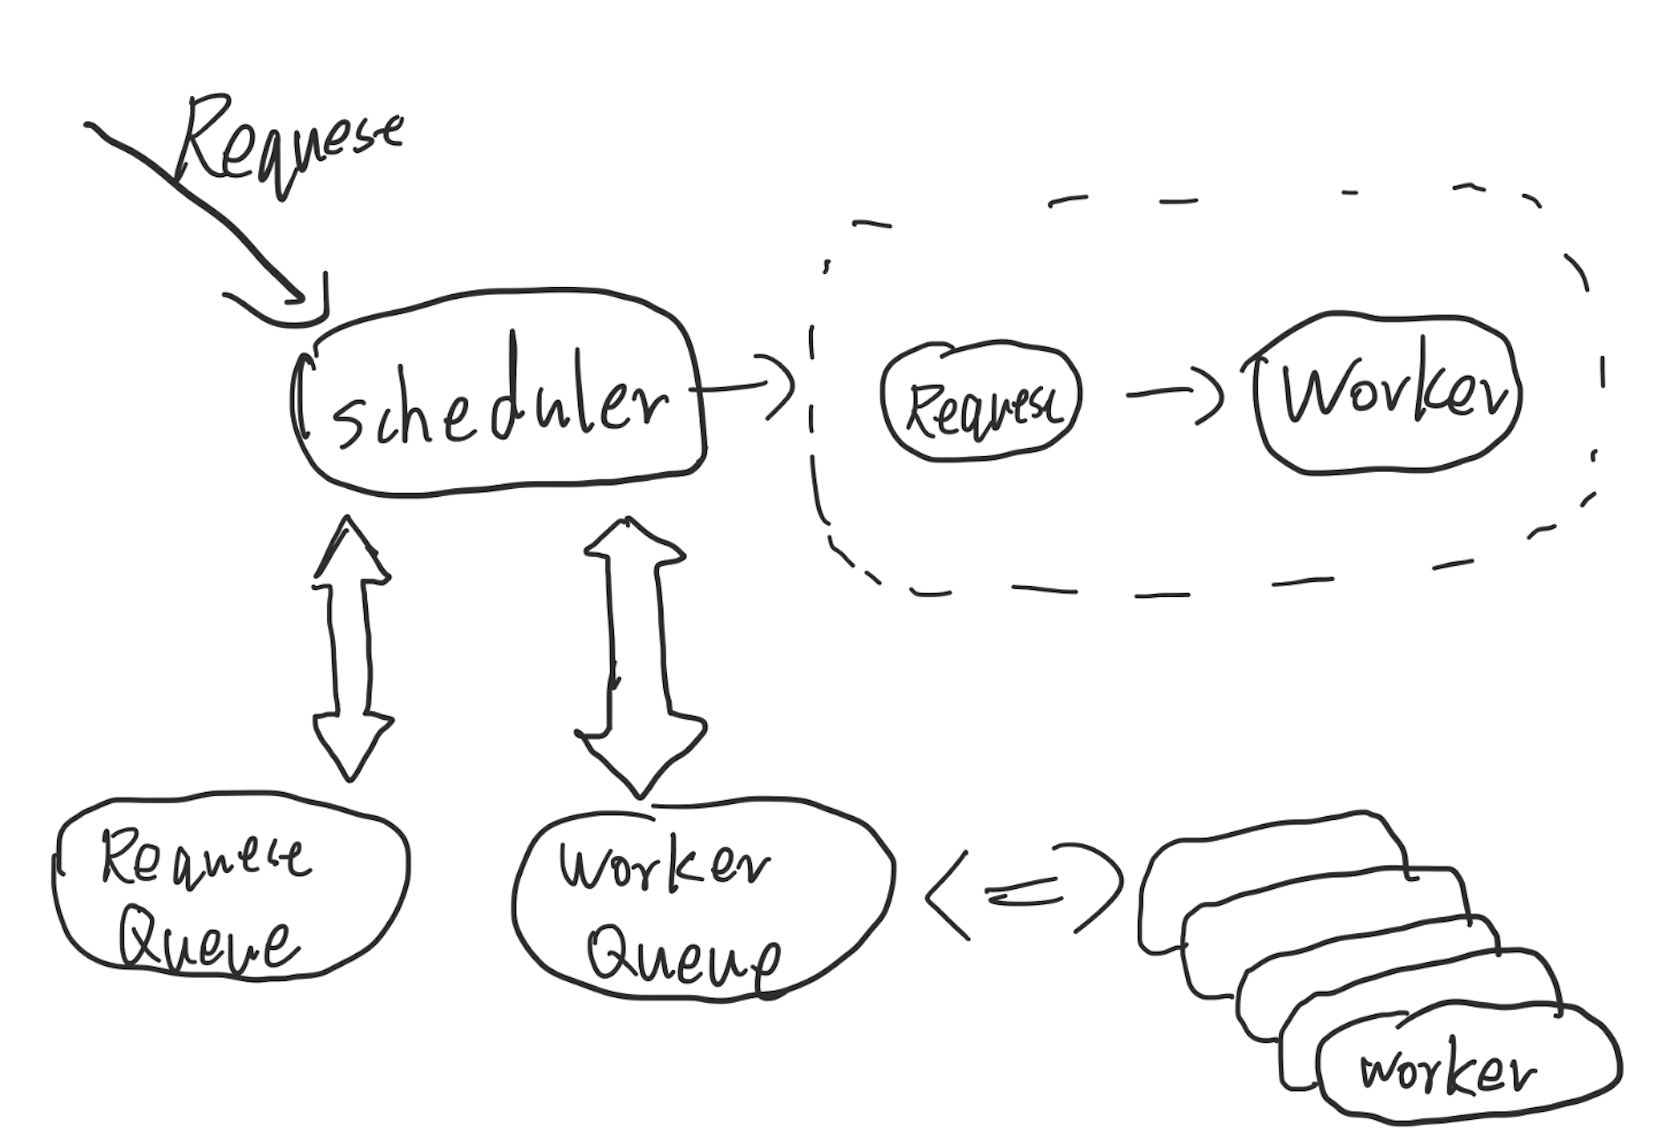 Requese
scheduler
Requese
Worker
Requese
Queue
Worker
Queue
worker